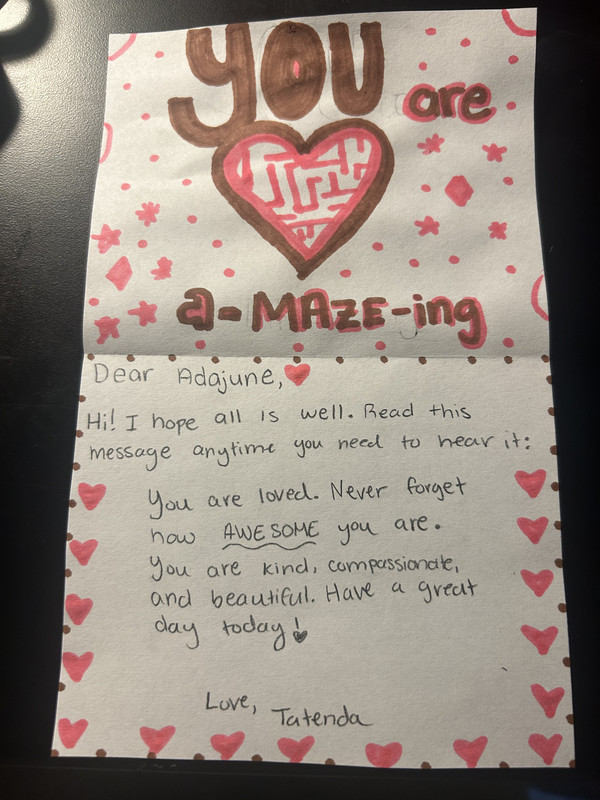 YOU are
a-MAZE-ing
Dear Adajune,
Hi! I hope all is well. Read this
message anytime you need to hear it:
You are loved. Never forget
how AWESOME you are.
You are kind, compassionate,
and beautiful. Have a great
day today!
Love, Tatenda